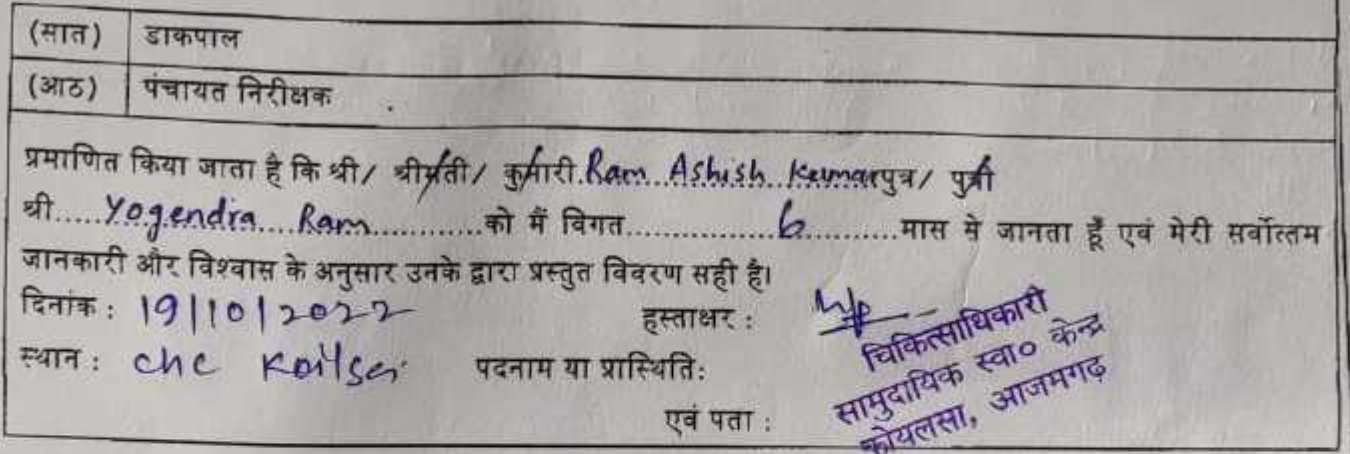 (सात) डाकपाल
(आठ) पंचायत निरीक्षक
प्रमाणित किया जाता है कि श्री/ श्रीमती/ कुमारी.Ram Ashish Kumarपुत्र/ पुत्री
श्री.....Yogendra Ram.............को मैं विगत.................6...........मास से जानता हूँ एवं मेरी सर्वोत्तम
जानकारी और विश्वास के अनुसार उनके द्वारा प्रस्तुत विवरण सही है।
दिनांक : 19|10|2022 हस्ताक्षर :
स्थान : CHC पदनाम या प्रास्थिति:
एवं पता :
चिकित्साधिकारी
सामुदायिक स्वा० केन्द्र
कोयलसा, आजमगढ़